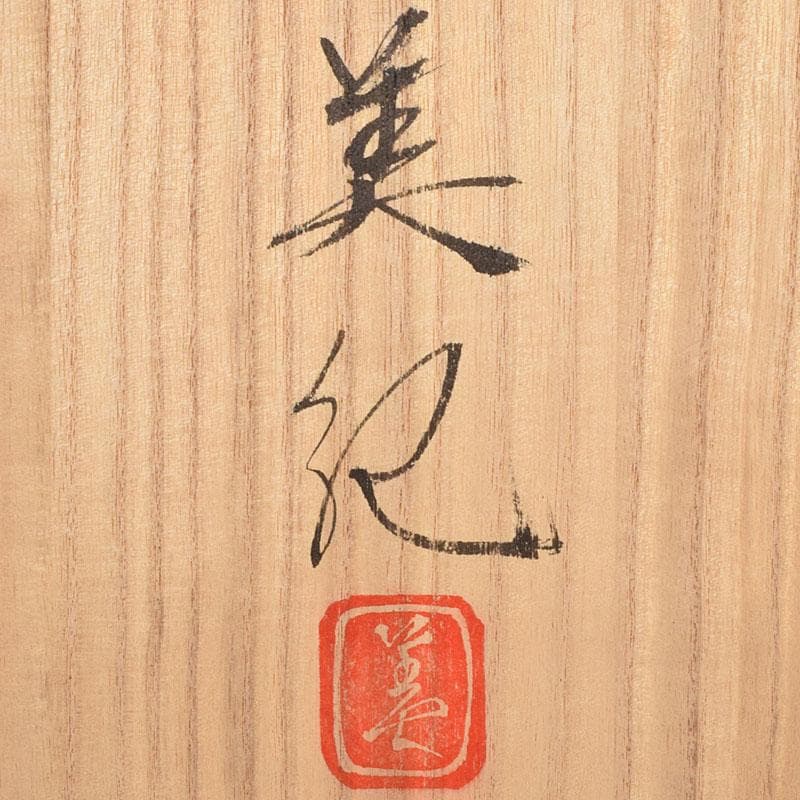 美紀
美